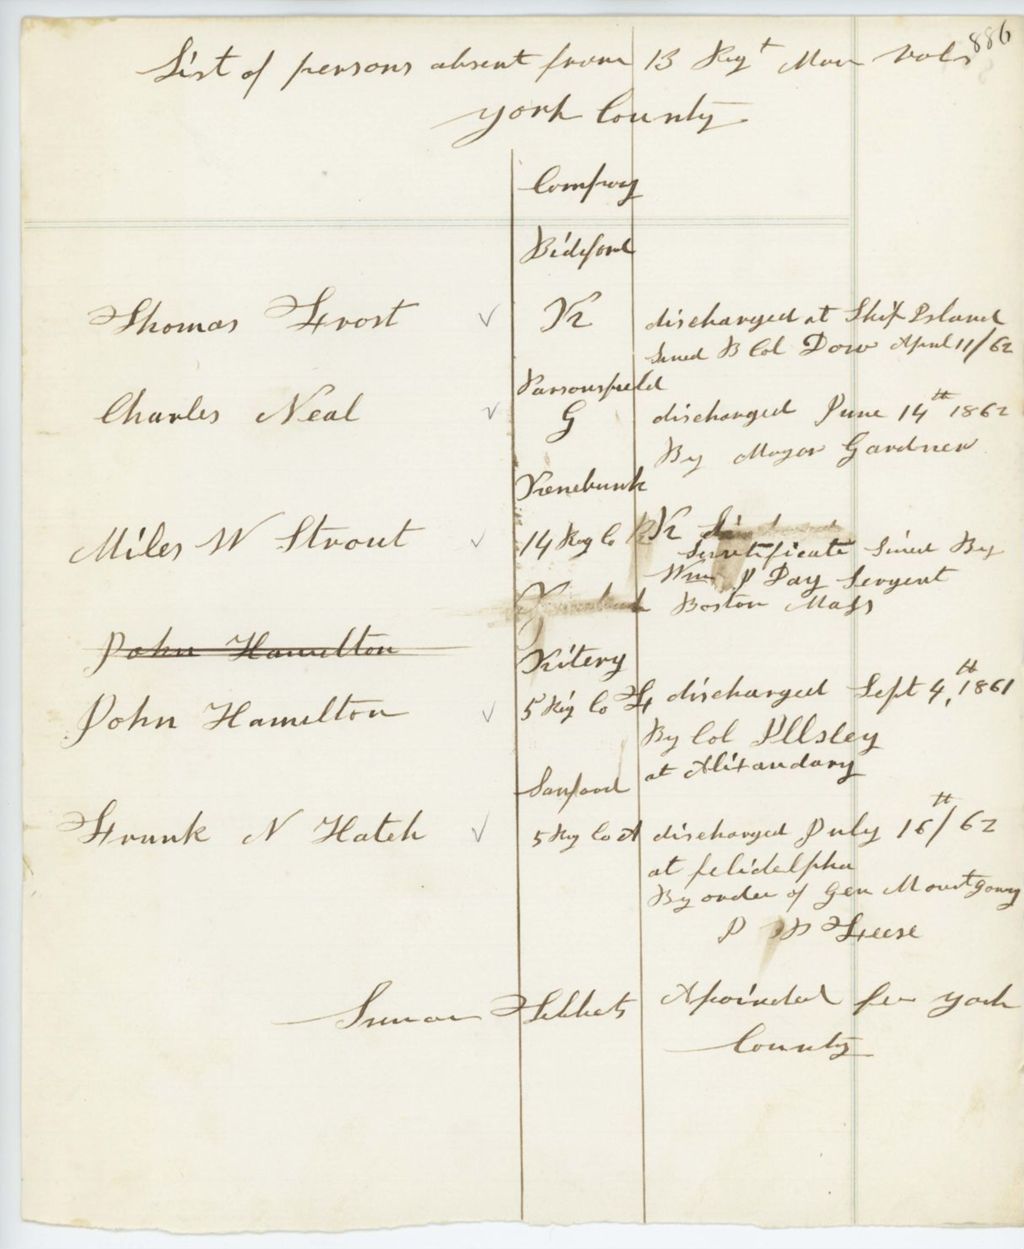 886
List of persons absent from 13 Regt Maine Vols
York County
Company
Bideford
Thomas Frost ✓ K discharged at Ship Island
Sined B Col Dow April 11/62
Parsonsfield
Charles Neal ✓ G discharged June 14th 1862
By Mayor Gardner
Kenebunk
Miles W Strout ✓ 14 Reg Co K
Surtificate Sined By
Wm J Day Sergent
Boston Mass
John Hamelton
Kitery
John Hamelton ✓ 5 Reg Co F discharged Sept 4th, 1861
By Col Illsley
at Alixandary
Sanford
Frank N Hatch ✓ 5 Reg Co A discharged July 16th/62
at felidelpha
By order of Gen Mountgomry
Tebbets Apointed for York
County